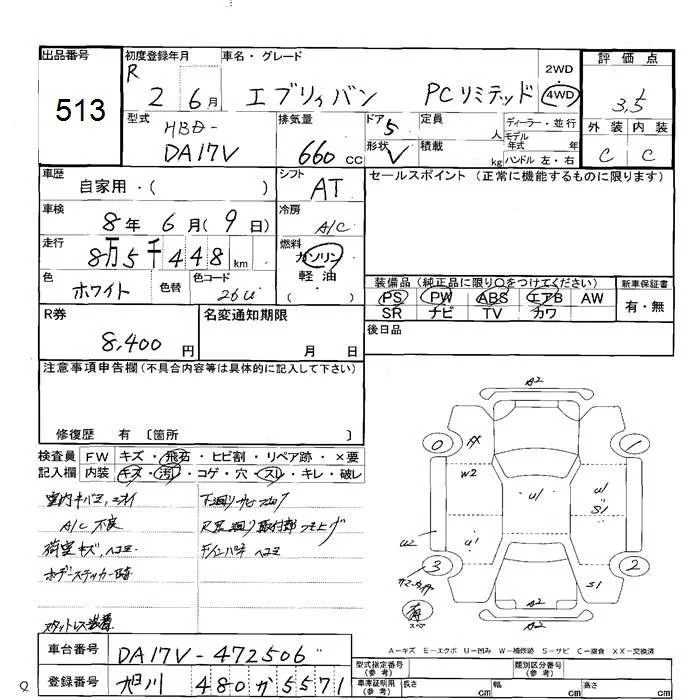 出品番号
513
初度登録年月
R 2 6月
車名・グレード
エブリィバン PCリミテッド
2WD
4WD
評価点
3.5
外装 内装
C C
型式
HBD-
DA17V
排気量
660 CC
ドア 5
形状 V
定員 人
積載 kg
ディーラー・並行
モデル年式 年
ハンドル 左・右
車歴
自家用・( )
シフト
AT
セールスポイント (正常に機能するものに限ります)
車検
8年 6月(9日)
冷房
A/C
走行
8万5千448km
燃料
ガソリン
軽油
( )
色
ホワイト
色替
色コード
26U
装備品 (純正品に限り○をつけてください)
PS PW ABS エアB AW
SR ナビ TV カワ
新車保証書
有・無
R券
8,400円
名変通知期限
月 日
後日品
注意事項申告欄 (不具合内容等は具体的に記入して下さい)
修復歴 有 〔箇所 〕
検査員記入欄
FW キズ・飛石・ヒビ割・リペア跡・×要
内装 キズ・汚れ・コゲ・穴・スレ・キレ・破レ
A/C 不良
荷室キズ、ヘコミ
ボデーステッカー跡
スタットレス装着
A2
0
AX
W2
U1
1
U1
S1
U2
U1
3
2
S1
A2
A2
有
スペア
A-キズ E-エクボ U-凹み W-補修跡 S-サビ C-腐食 XX-交換済
車台番号
DA17V-472506
登録番号
旭川 480 か 5571
型式指定番号 (参考)
類別区分番号 (参考)
車庫証明用 (参考)
長さ cm
幅 cm
高さ cm